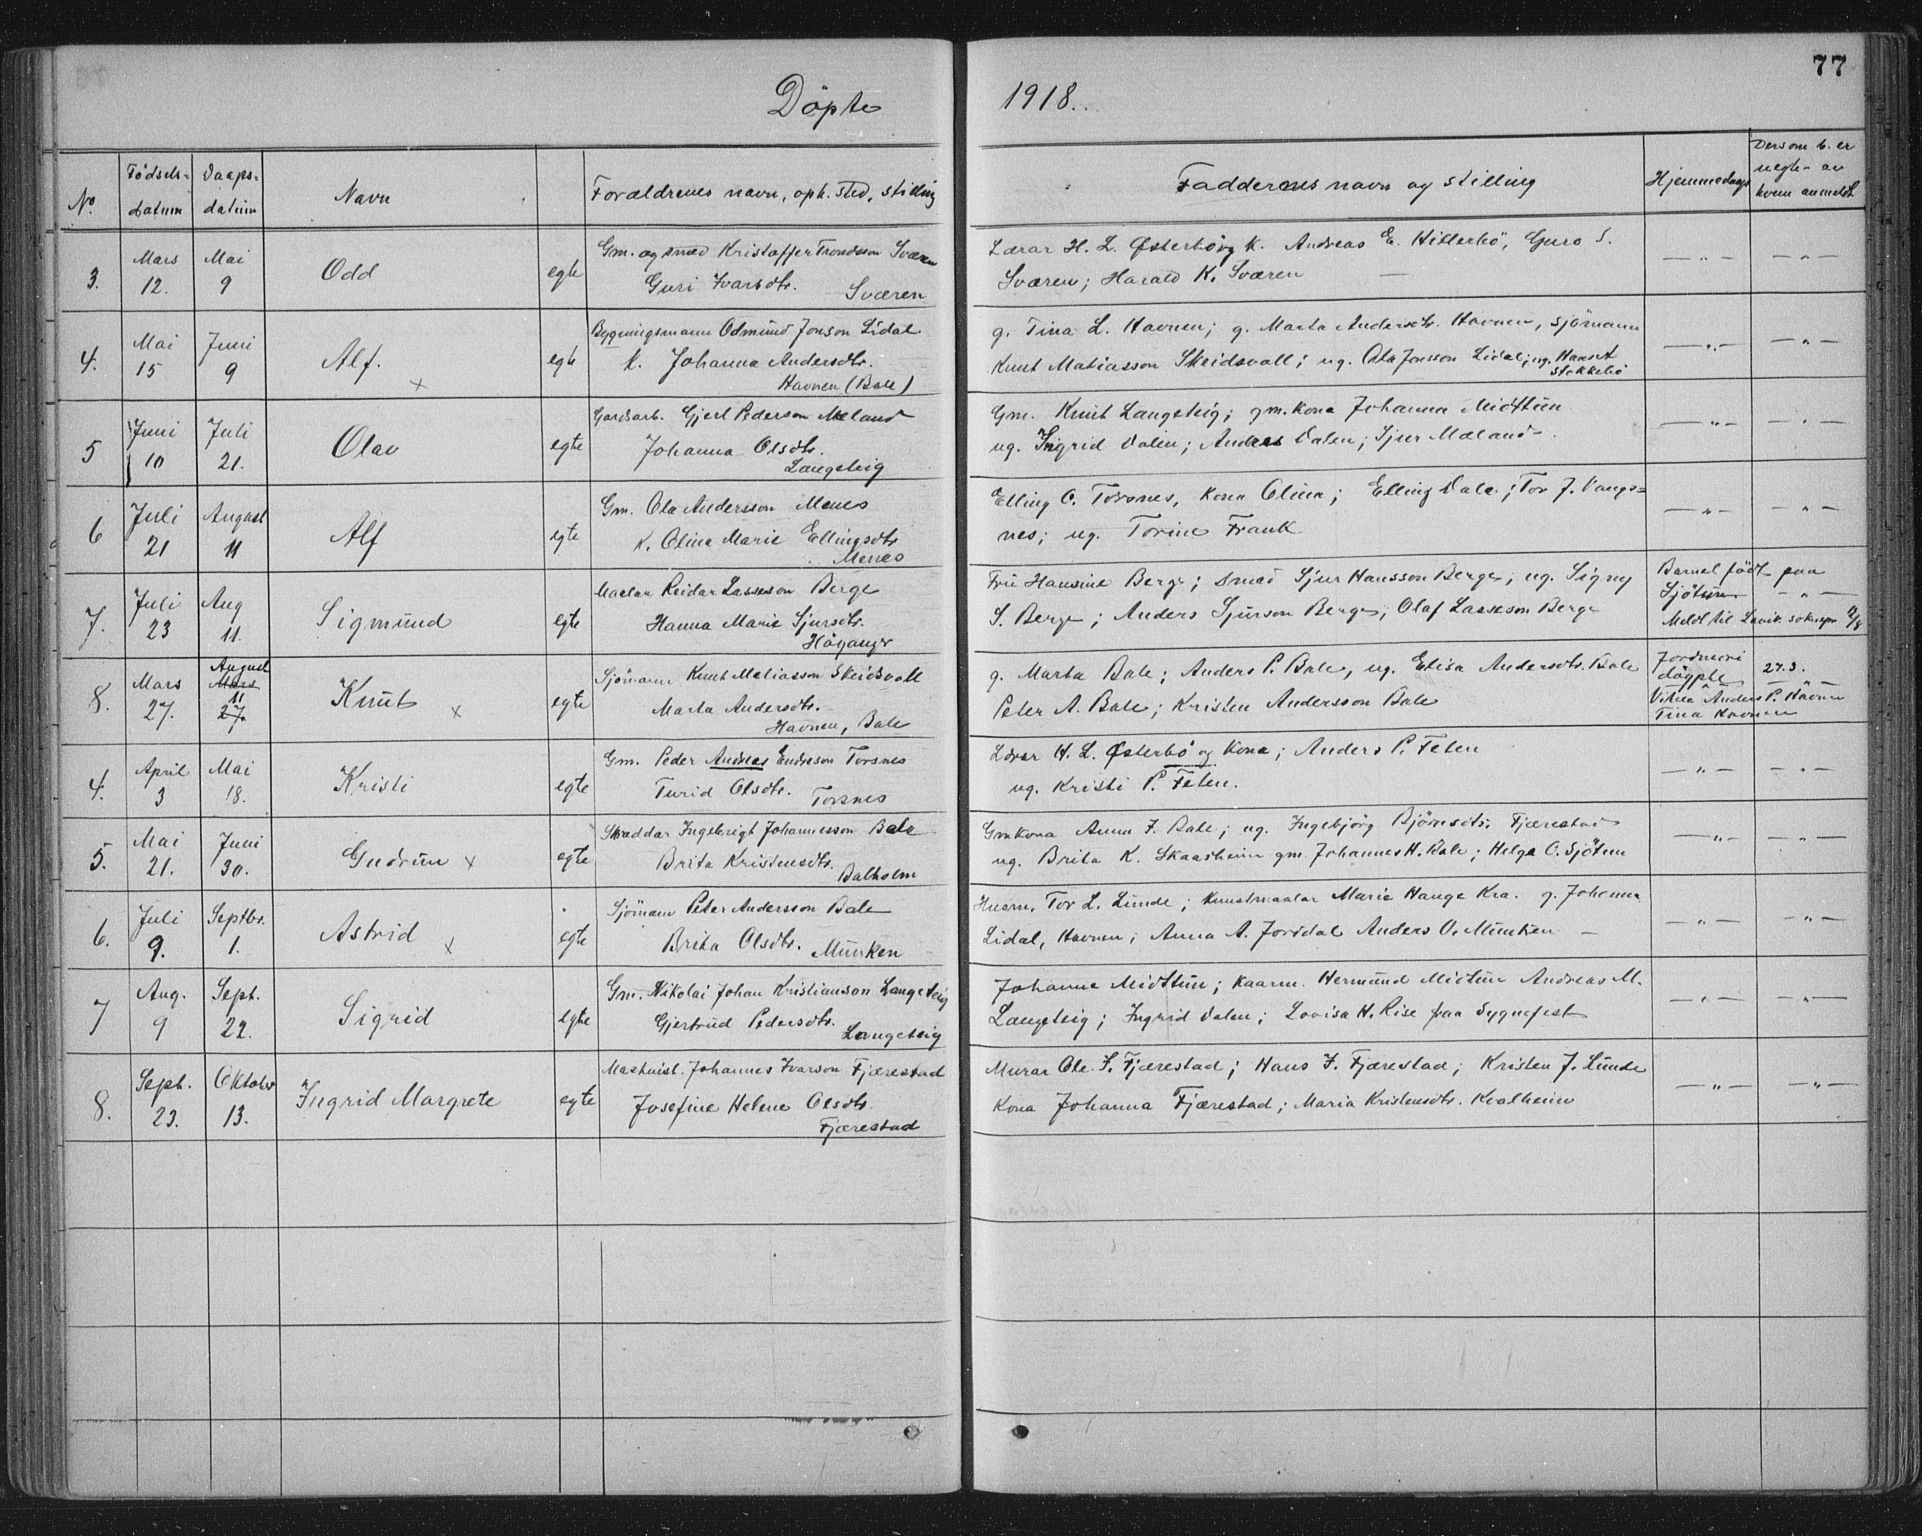 77
Döpte 1918.
No. Fødsels-datum Daaps-datum Navn Forældrenes navn, oph. sted, stilling Fadderenes navn og stilling Hjemmedaap Dersom b. er uegte - av hvem anmeldt
3. Mars 12. Mai 9 Odd egte Gm. og smed Kristoffer Trondsson Sværen
Guri Ivarsdtr. Sværen
Lærar H. L. Østerbø og k. Andreas E. Hitlerbö, Guro S.
Sværen; Harald K. Sværen
— " — — " —
4. Mai 15 Juni 9 Alf. x egte Bygningsmann Odmund Jonson Lidal
k. Johanna Andersdtr.
Havnen (Bale)
g. Tina L. Havnen; g. Marta Andersdtr. Havnen, sjömann
Knut Matiasson Skeidsvoll; ug. Ola Jonsson Lidal; ug. Hans A
Stokkebö
— " — — " —
5 Juni 10 Juli 21. Olav egte Gardsarb. Gjerl Pederson Mæland
Johanna Olsdtr.
Langeteig
Gm. Knut Langeteig; gm. kona Johanna Midttun
ug. Ingrid Dalen; Anders Dalen; Sjur Mæland
— " — — " —
6 Juli 21 August 11 Alf egte Gm. Ola Andersson Menes
k. Olina Marie Ellingsdtr.
Menes
Elling O. Torsnes, kona Olina; Elling Dale; Tor J. Vangs=
nes; ug. Torine Frank
— " — — " —
7. Juli 23 Aug 11. Sigmund egte Maalar Reidar Lasseson Berge
Hanna Marie Sjursdtr.
Höyanger
Fru Hansine Berge; smed Sjur Hansson Berge; ug. Signy
S. Berge; Anders Sjurson Berge; Olaf Lasseson Berge
Barnet födt paa
Sjötun — " —
Meldt til Lavik soknepr. 12/8
8. Mars 27. August Mars 11 27. Knut x egte Sjömann Knut Matiasson Skeidsvoll
Marta Andersdtr.
Havnen, Bale
g. Marta Bale; Anders P. Bale, ug. Elisa Andersdtr. Bale
Peter A. Bale; Kristen Andersson Bale
Jordmori 27.3.
döypte — " —
Vitna Anders P. Havnen
Tina Havnen
4. April 3 Mai 18. Kristi egte Gm. Peder Andreas Endreson Torsnes
Turid Olsdtr. Torsnes
Lærar H. L. Østerbö og kona; Anders P. Feten
ug. Kristi P. Feten.
— " — — " —
5. Mai 21. Juni 30. Gudrun x egte Skraddar Ingebrigt Johannesson Bale
Brita Kristensdtr.
Balholm
Gmkona Anna J. Bale; ug. Ingebjörg Björnsdtr. Fjærestad
ug. Brita K. Skaasheim gm. Johannes H. Bale; Helge O. Sjötun
— " — — " —
6. Juli 9. Septbr. 1. Astrid x egte Sjömann Peter Andersson Bale
Brita Olsdtr. Munken
Husm. Tor L. Lunde; kunstmaalar Marie Hauge Kra. g. Johanna
Lidal, Havnen; Anna A. Jordal Anders O. Munken —
— " — — " —
7 Aug. 9 Sept. 22. Sigrid egte Gm. Nikolai Johan Kristianson Langeteig
Gjertrud Pedersdtr.
Langeteig
Johanne Midttun; kaarm. Hermund Midtun Andreas M.
Langeteig; Ingrid Dalen; Lovisa H. Rise paa Sygnefest
— " — — " —
8. Sept. 23. Oktober 13. Ingrid Margrete egte Maskinist. Johannes Ivarson Fjærestad
Josefine Helene Olsdtr.
Fjærestad
Murar Ole J. Fjærestad; Hans J. Fjærestad; Kristen J. Lunde
Kona Johanna Fjærestad; Maria Kristensdtr. Kvalheim
— " — — " —